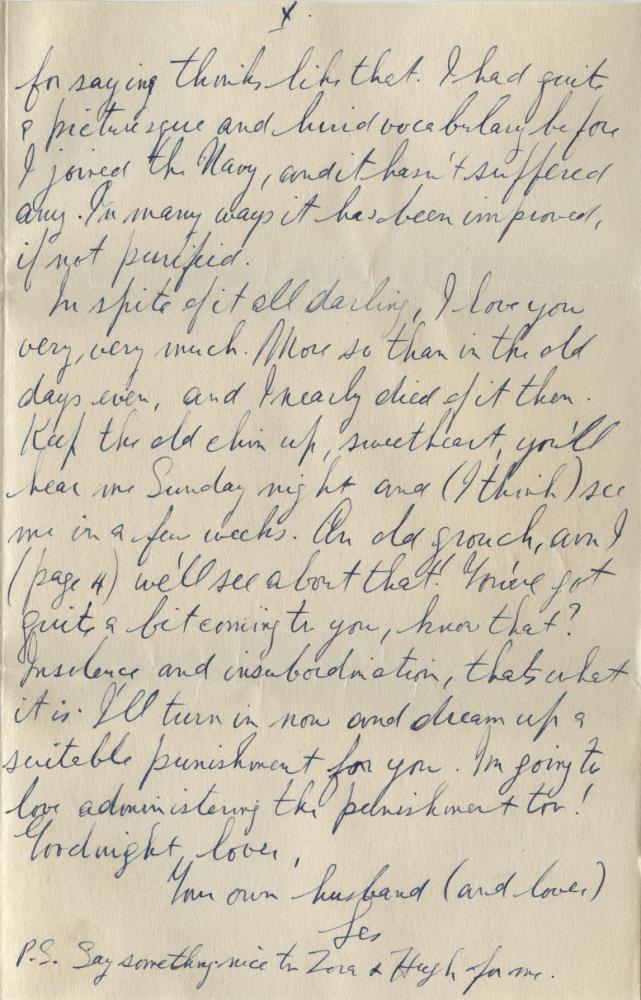 X.
for saying thinks like that. I had quite
a picturesque and lurid vocabulary before
I joined the Navy, and it hasn't suffered
any. In many ways it has been improved,
if not purified.
In spite of it all darling, I love you
very, very much. More so than in the old
days even, and I nearly died of it then.
Keep the old chin up, sweetheart, you'll
hear me Sunday night and (I think) see
me in a few weeks. An old grouch, am I
(page 4) we'll see about that! You've got
quite a bit coming to you, know that?
Insolence and insubordination, thats what
it is. I'll turn in now and dream up a
suitable punishment for you. I'm going to
love administering the punishment too!
Goodnight, lover,
Your own husband (and lover)
Les
P.S. Say something nice to Zora & Hugh for me.